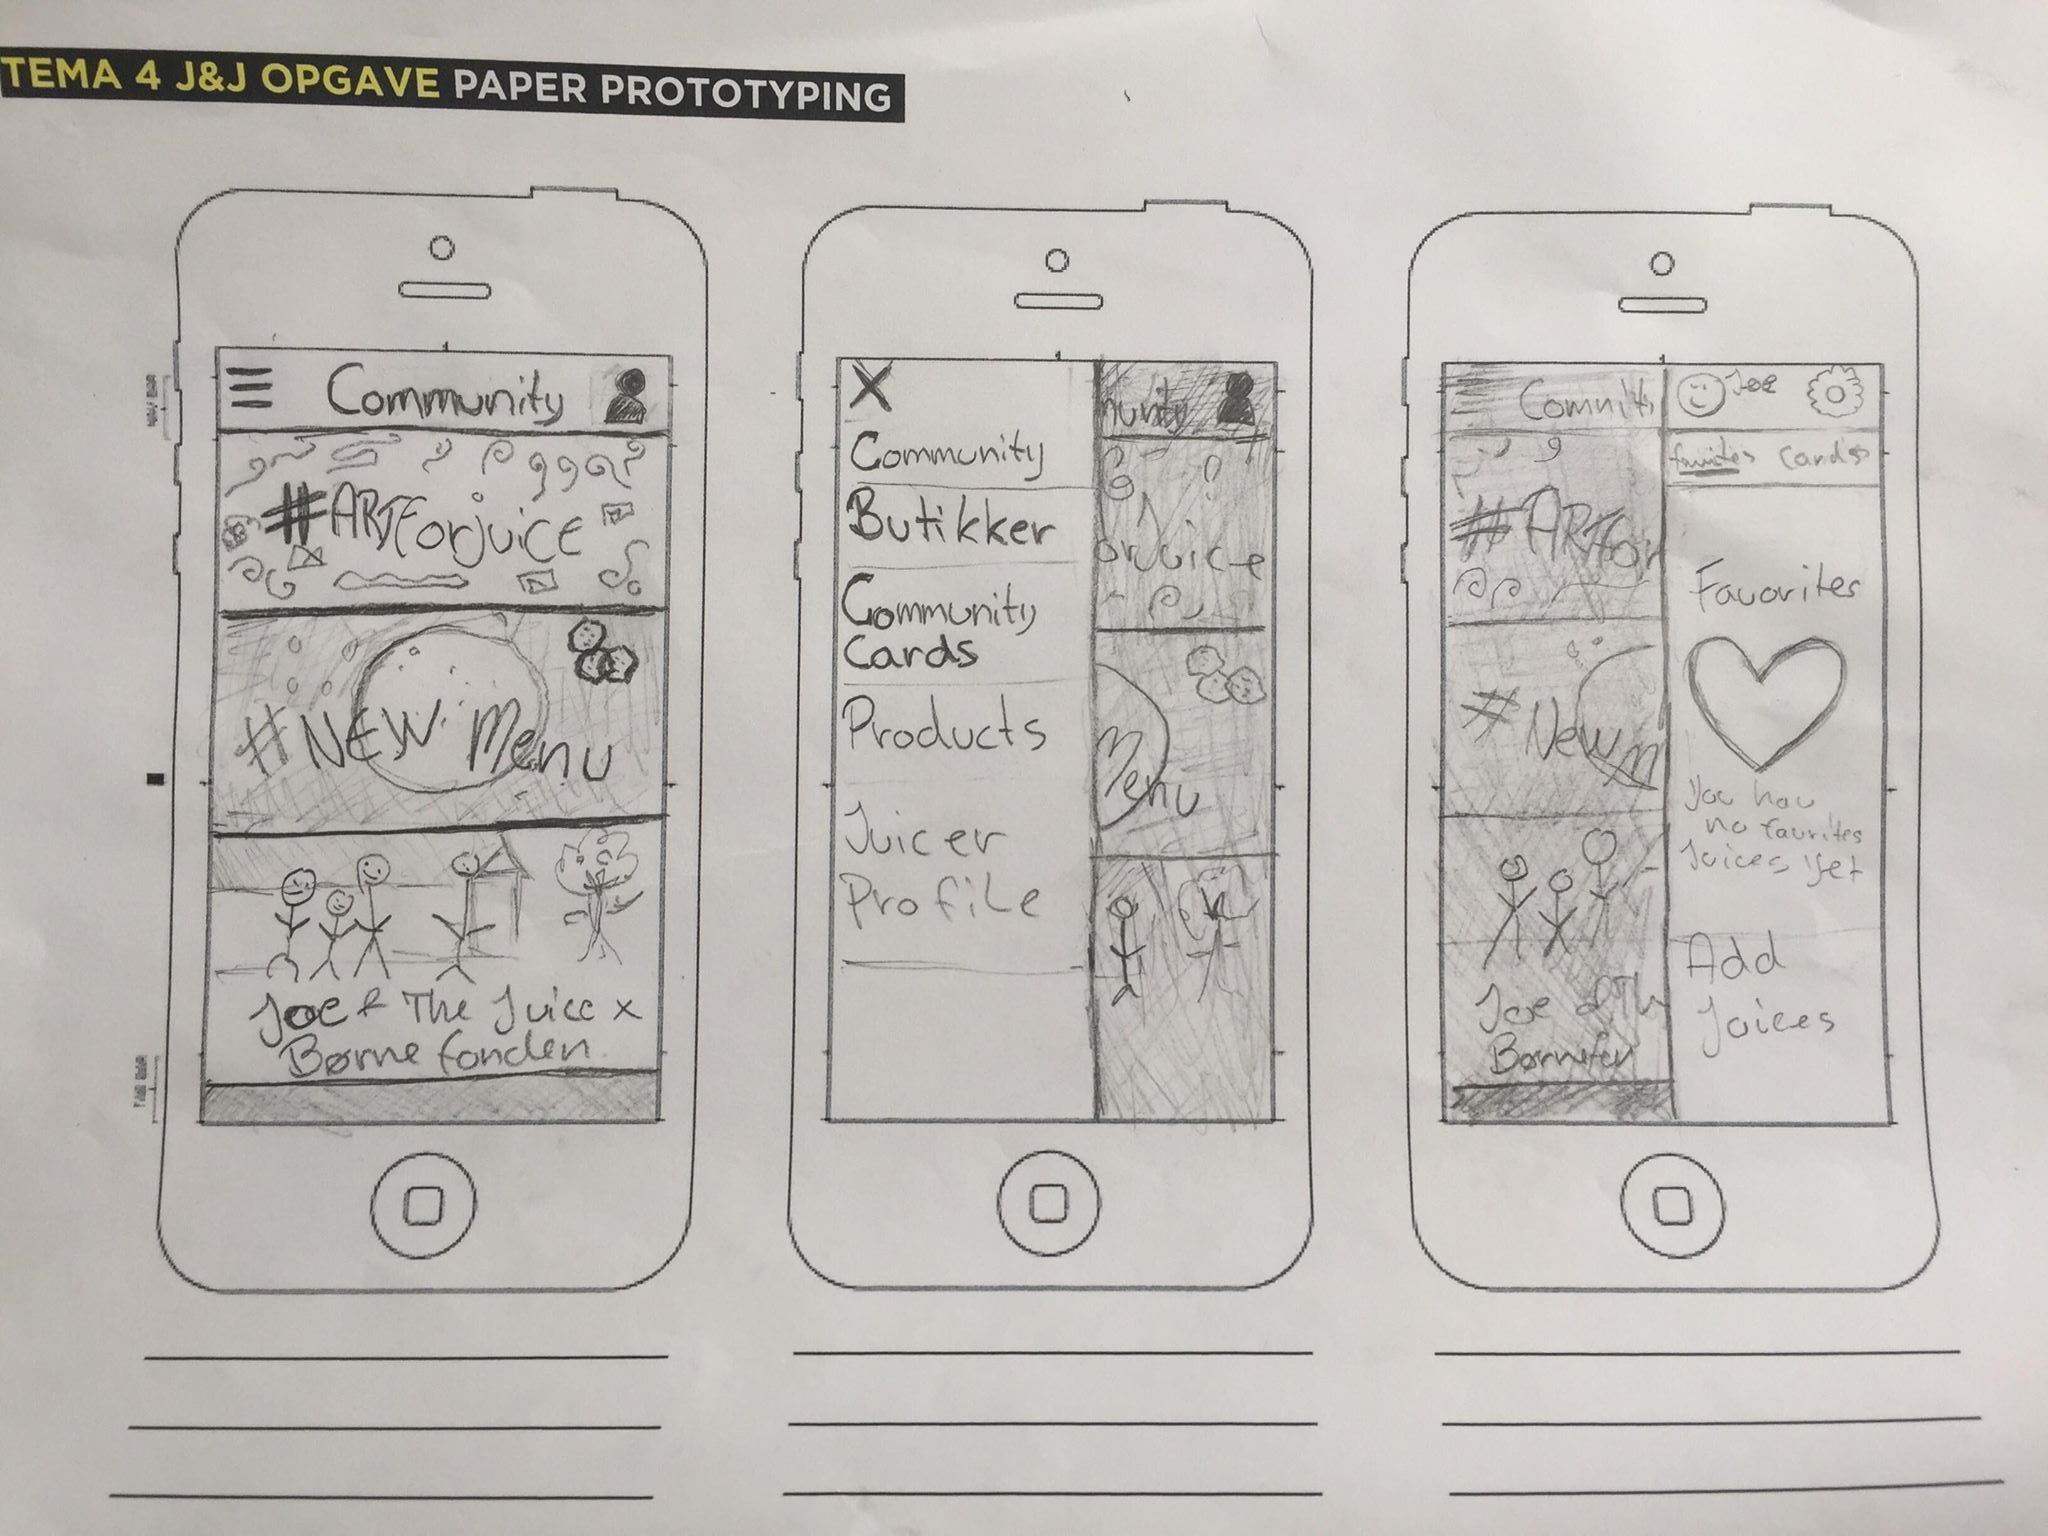 TEMA 4 J&J OPGAVE PAPER PROTOTYPING
Community
#ARTForjuice
#NEW Menu
Joe & The Juice x
Børne fonden
X
Community
Butikker
Community
Cards
Products
Juicer
Profile
nunity
orJuice
Menu
Joe
Cards
#ARTfor
#New M
Joe & Th
Børnefon
Favorites
You hav
no favorites
Juices yet
Add
Juices